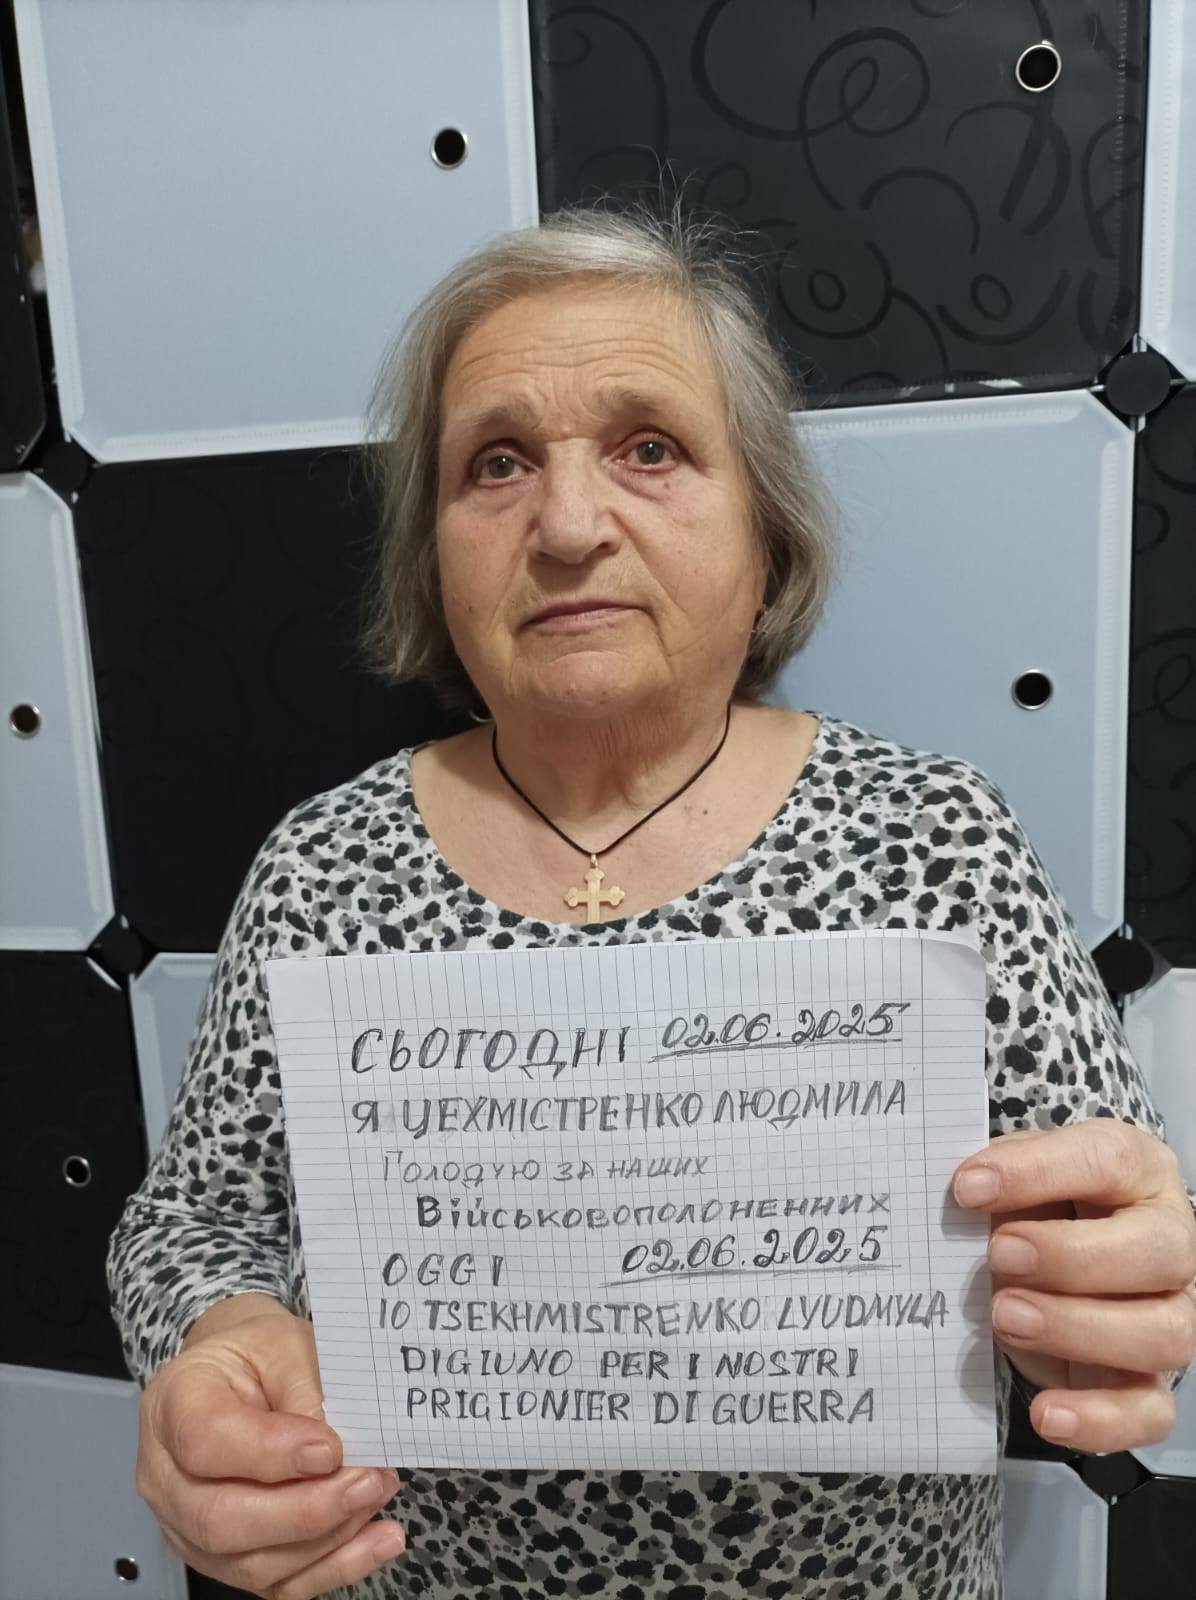 СЬОГОДНІ 02.06.2025
Я ЦЕХМІСТРЕНКО ЛЮДМИЛА
ГОЛОДУЮ ЗА НАШИХ
ВІЙСЬКОВОПОЛОНЕННИХ
OGGI 02.06.2025
IO TSEKHMISTRENKO LYUDMYLA
DIGIUNO PER I NOSTRI
PRIGIONIER DI GUERRA